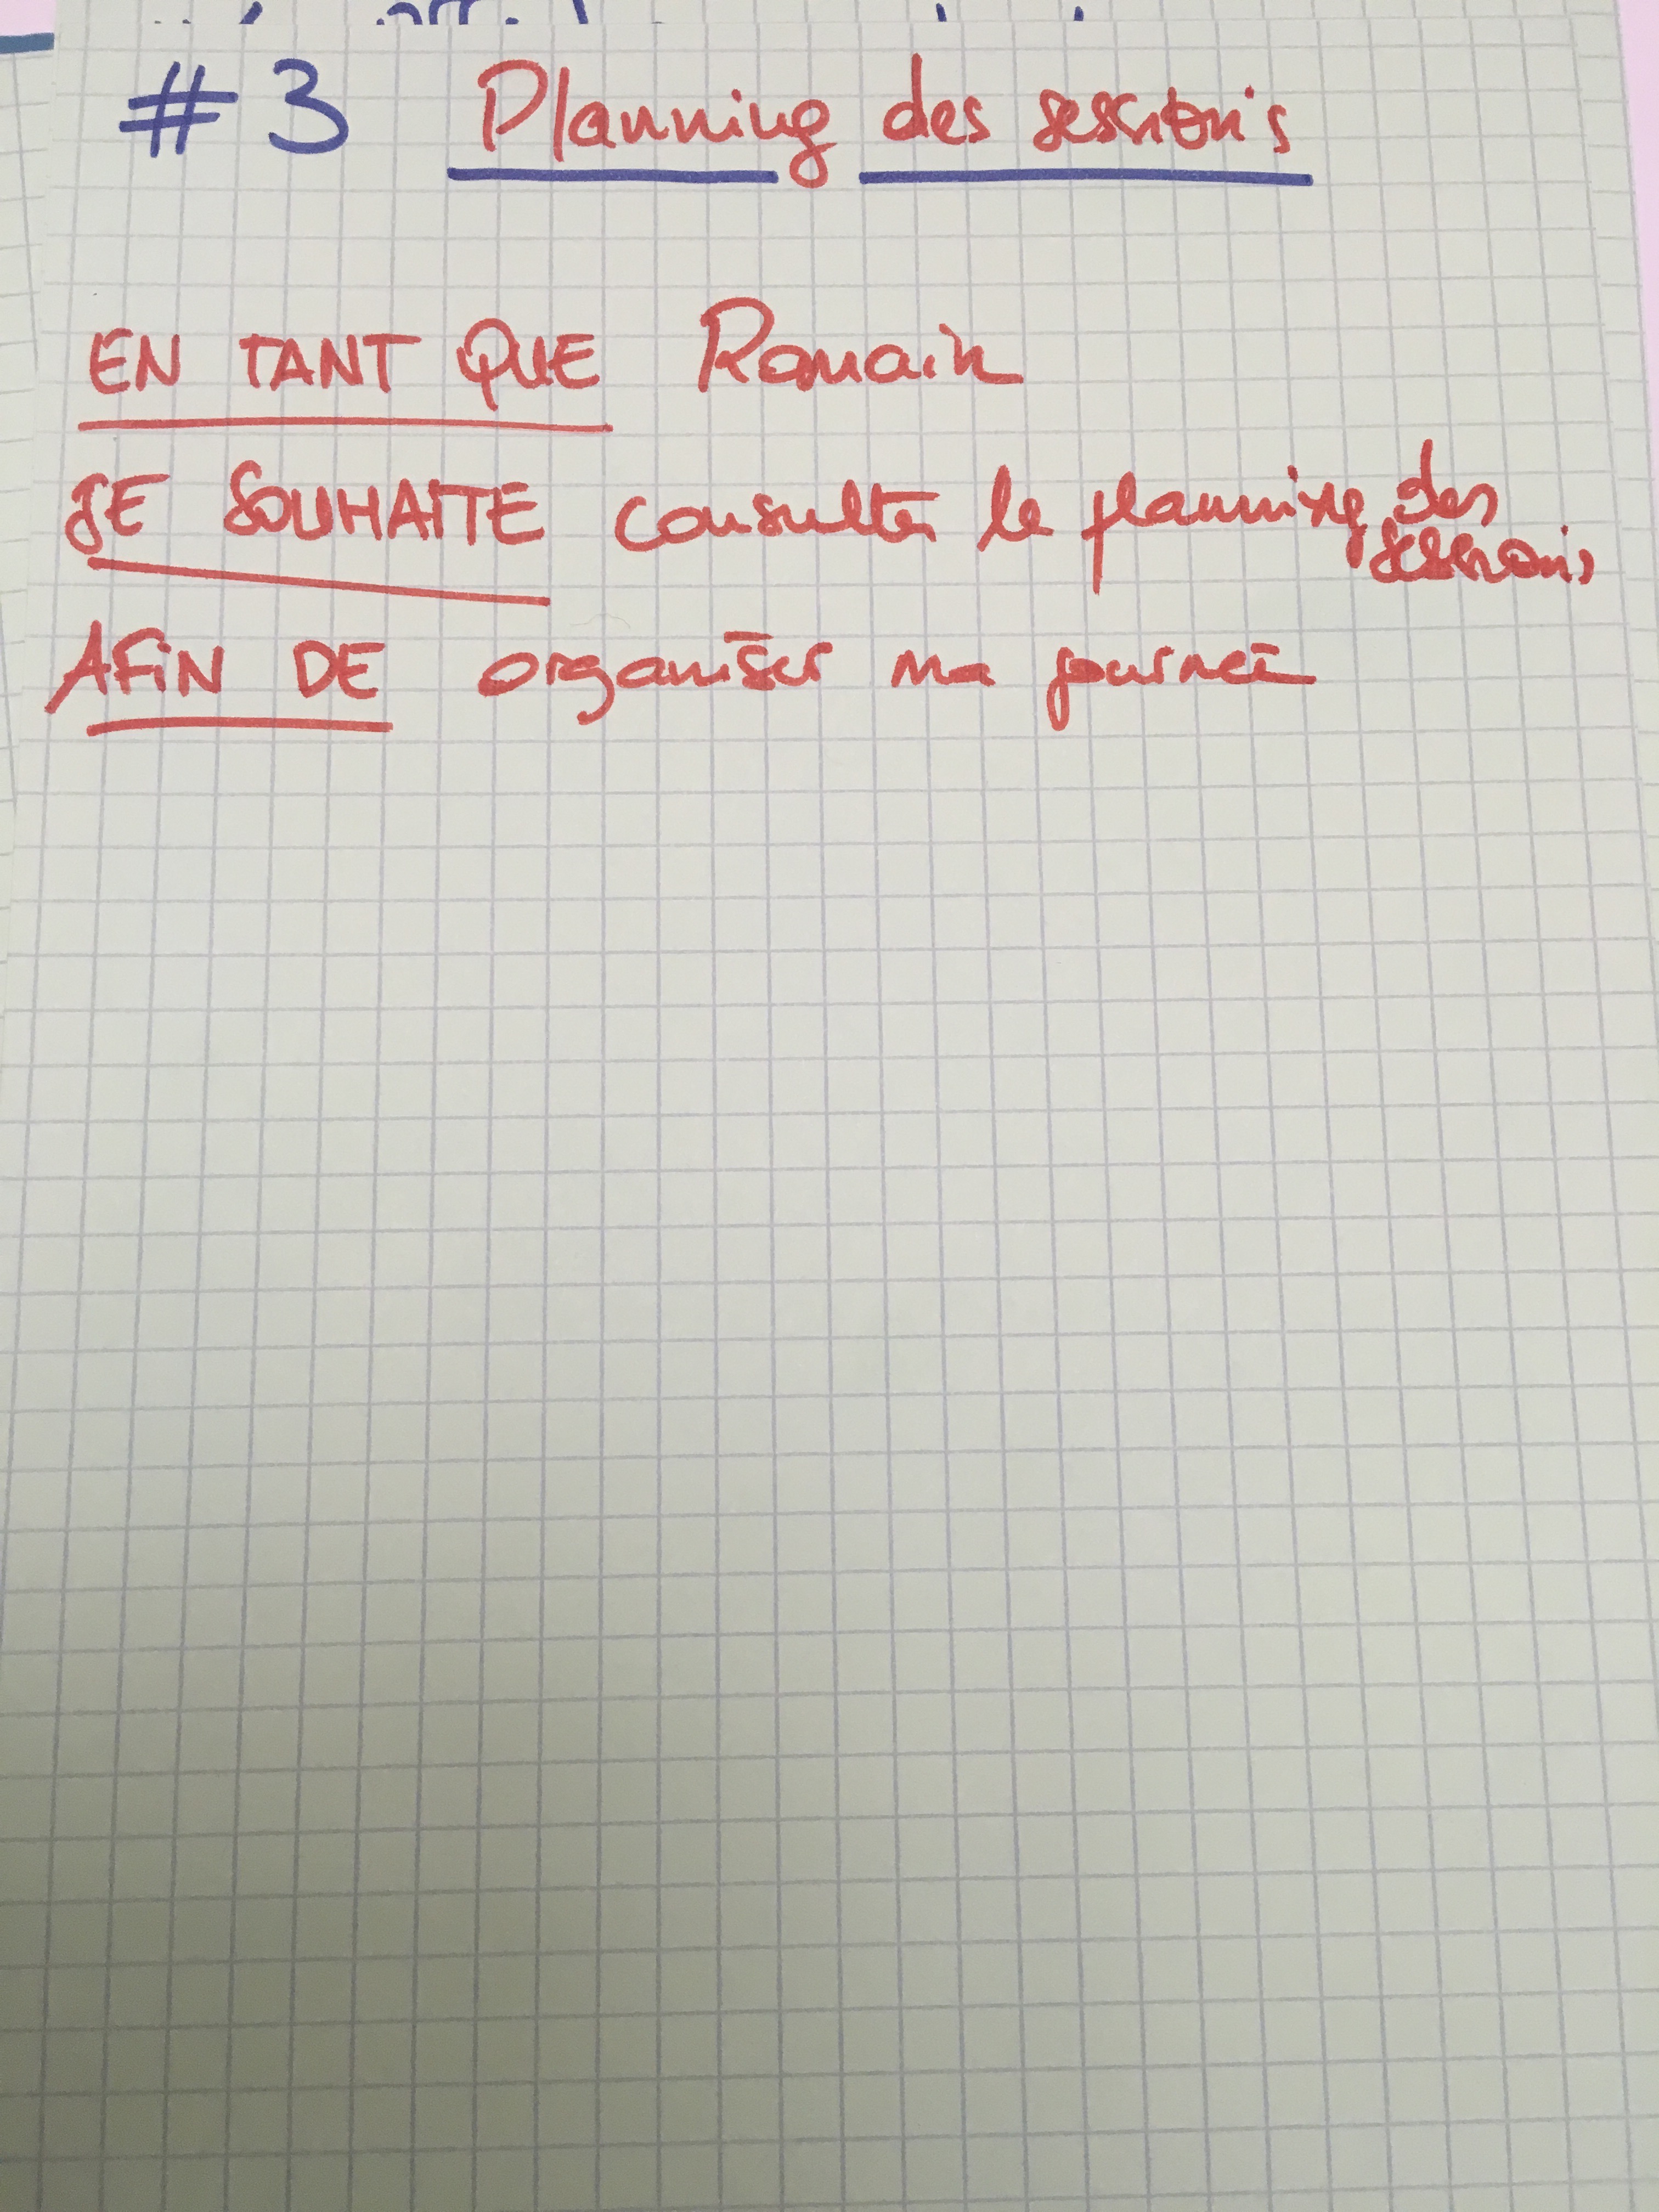 #3 Planning des sessions
EN TANT QUE Romain
JE SOUHAITE consulter le planning des
sessions
AFIN DE organiser ma journée